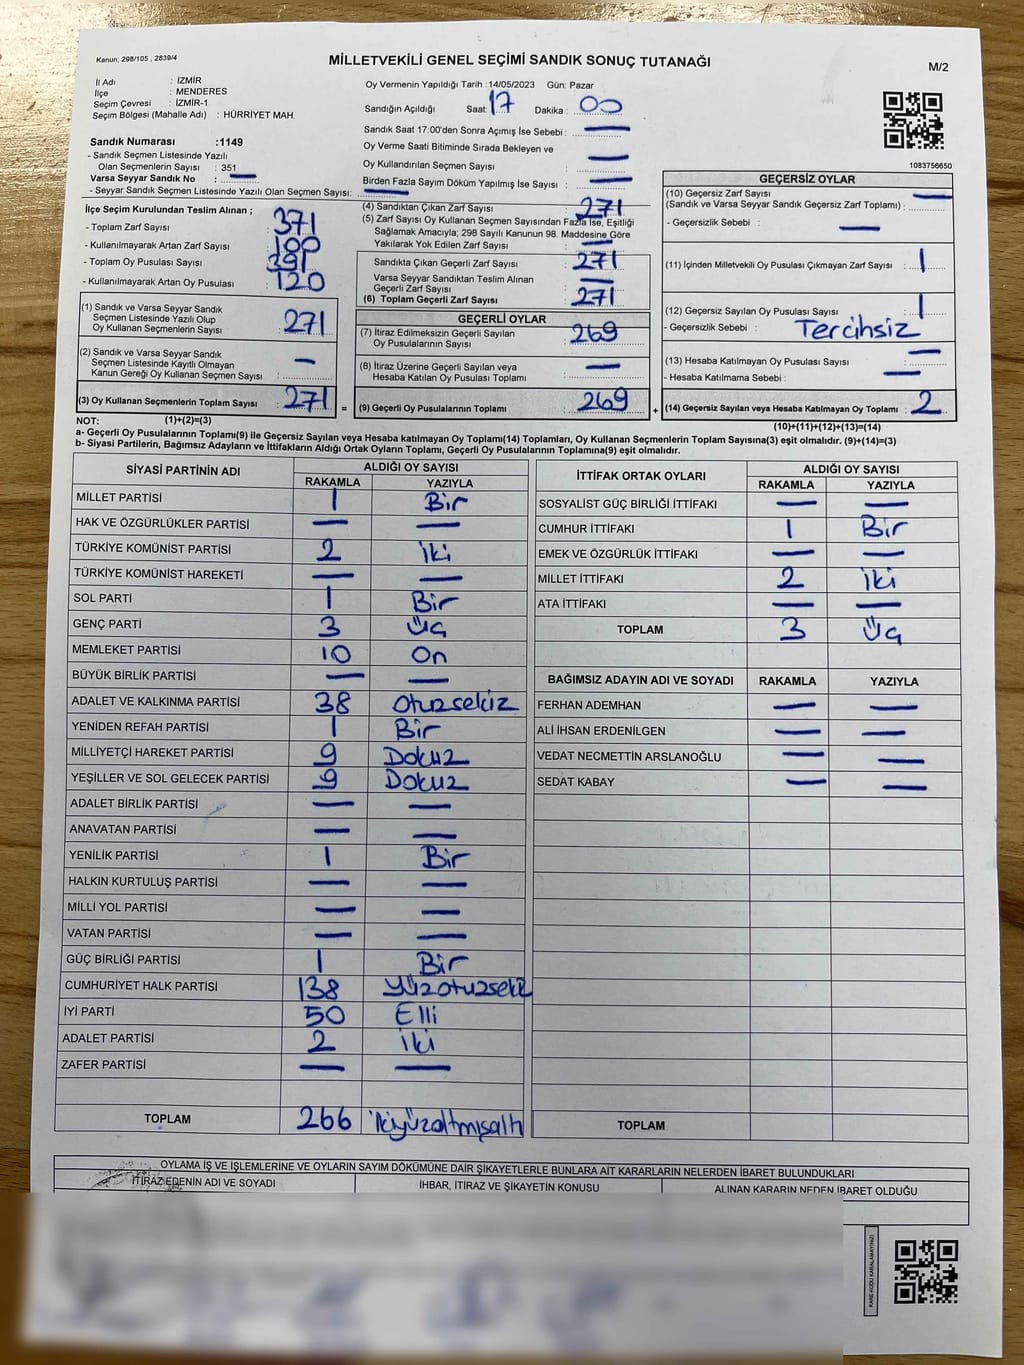 Kanun; 298/105 , 2839/4
MİLLETVEKİLİ GENEL SEÇİMİ SANDIK SONUÇ TUTANAĞI
M/2
İl Adı : İZMİR
İlçe : MENDERES
Seçim Çevresi : İZMİR-1
Seçim Bölgesi (Mahalle Adı) : HÜRRİYET MAH.
Sandık Numarası :1149
- Sandık Seçmen Listesinde Yazılı
Olan Seçmenlerin Sayısı : 351
Varsa Seyyar Sandık No : —
- Seyyar Sandık Seçmen Listesinde Yazılı Olan Seçmen Sayısı: —
Oy Vermenin Yapıldığı Tarih :14/05/2023 Gün: Pazar
Sandığın Açıldığı Saat: 17 Dakika : 00
Sandık Saat 17:00'den Sonra Açımış İse Sebebi : —
Oy Verme Saati Bitiminde Sırada Bekleyen ve
Oy Kullandırılan Seçmen Sayısı : —
Birden Fazla Sayım Döküm Yapılmış İse Sayısı : —
1083756650
İlçe Seçim Kurulundan Teslim Alınan ;
- Toplam Zarf Sayısı : 371
- Kullanılmayarak Artan Zarf Sayısı : 100
- Toplam Oy Pusulası Sayısı : 391
- Kullanılmayarak Artan Oy Pusulası : 120
(1) Sandık ve Varsa Seyyar Sandık
Seçmen Listesinde Yazılı Olup
Oy Kullanan Seçmenlerin Sayısı : 271
(2) Sandık ve Varsa Seyyar Sandık
Seçmen Listesinde Kayıtlı Olmayan
Kanun Gereği Oy Kullanan Seçmen Sayısı : —
(3) Oy Kullanan Seçmenlerin Toplam Sayısı : 271 =
(4) Sandıktan Çıkan Zarf Sayısı : 271
(5) Zarf Sayısı Oy Kullanan Seçmen Sayısından Fazla İse, Eşitliği
Sağlamak Amacıyla; 298 Sayılı Kanunun 98. Maddesine Göre
Yakılarak Yok Edilen Zarf Sayısı : —
Sandıkta Çıkan Geçerli Zarf Sayısı : 271
Varsa Seyyar Sandıktan Teslim Alınan
Geçerli Zarf Sayısı : —
(6) Toplam Geçerli Zarf Sayısı : 271
GEÇERLİ OYLAR
(7) İtiraz Edilmeksizin Geçerli Sayılan
Oy Pusulalarının Sayısı : 269
(8) İtiraz Üzerine Geçerli Sayılan veya
Hesaba Katılan Oy Pusulası Toplamı : —
(9) Geçerli Oy Pusulalarının Toplamı : 269 +
GEÇERSİZ OYLAR
(10) Geçersiz Zarf Sayısı
(Sandık ve Varsa Seyyar Sandık Geçersiz Zarf Toplamı) : —
- Geçersizlik Sebebi : —
(11) İçinden Milletvekili Oy Pusulası Çıkmayan Zarf Sayısı : 1
(12) Geçersiz Sayılan Oy Pusulası Sayısı : 1
- Geçersizlik Sebebi : Tercihsiz
(13) Hesaba Katılmayan Oy Pusulası Sayısı : —
- Hesaba Katılmama Sebebi : —
(14) Geçersiz Sayılan veya Hesaba Katılmayan Oy Toplamı : 2
NOT: (1)+(2)=(3) (10)+(11)+(12)+(13)=(14)
a- Geçerli Oy Pusulalarının Toplamı(9) ile Geçersiz Sayılan veya Hesaba katılmayan Oy Toplamı(14) Toplamları, Oy Kullanan Seçmenlerin Toplam Sayısına(3) eşit olmalıdır. (9)+(14)=(3)
b- Siyasi Partilerin, Bağımsız Adayların ve İttifakların Aldığı Oyların Toplamı, Geçerli Oy Pusulalarının Toplamına(9) eşit olmalıdır.
SİYASİ PARTİNİN ADI ALDIĞI OY SAYISI
RAKAMLA YAZIYLA
MİLLET PARTİSİ 1 Bir
HAK VE ÖZGÜRLÜKLER PARTİSİ — —
TÜRKİYE KOMÜNİST PARTİSİ 2 iki
TÜRKİYE KOMÜNİST HAREKETİ — —
SOL PARTİ 1 Bir
GENÇ PARTİ 3 Üç
MEMLEKET PARTİSİ 10 On
BÜYÜK BİRLİK PARTİSİ — —
ADALET VE KALKINMA PARTİSİ 38 otuzsekiz
YENİDEN REFAH PARTİSİ 1 Bir
MİLLİYETÇİ HAREKET PARTİSİ 9 Dokuz
YEŞİLLER VE SOL GELECEK PARTİSİ 9 Dokuz
ADALET BİRLİK PARTİSİ — —
ANAVATAN PARTİSİ — —
YENİLİK PARTİSİ 1 Bir
HALKIN KURTULUŞ PARTİSİ — —
MİLLİ YOL PARTİSİ — —
VATAN PARTİSİ — —
GÜÇ BİRLİĞİ PARTİSİ 1 Bir
CUMHURİYET HALK PARTİSİ 138 Yüzotuzsekiz
İYİ PARTİ 50 Elli
ADALET PARTİSİ 2 iki
ZAFER PARTİSİ — —
TOPLAM 266 ikiyüzaltmışaltı
İTTİFAK ORTAK OYLARI ALDIĞI OY SAYISI
RAKAMLA YAZIYLA
SOSYALİST GÜÇ BİRLİĞİ İTTİFAKI — —
CUMHUR İTTİFAKI 1 Bir
EMEK VE ÖZGÜRLÜK İTTİFAKI — —
MİLLET İTTİFAKI 2 iki
ATA İTTİFAKI — —
TOPLAM 3 Üç
BAĞIMSIZ ADAYIN ADI VE SOYADI RAKAMLA YAZIYLA
FERHAN ADEMHAN — —
ALİ İHSAN ERDENİLGEN — —
VEDAT NECMETTİN ARSLANOĞLU — —
SEDAT KABAY — —
TOPLAM
OYLAMA İŞ VE İŞLEMLERİNE VE OYLARIN SAYIM DÖKÜMÜNE DAİR ŞİKAYETLERLE BUNLARA AİT KARARLARIN NELERDEN İBARET BULUNDUKLARI
İTİRAZ EDENİN ADI VE SOYADI İHBAR, İTİRAZ VE ŞİKAYETİN KONUSU ALINAN KARARIN NEDEN İBARET OLDUĞU
KARE KODU KARALAMAYINIZ!